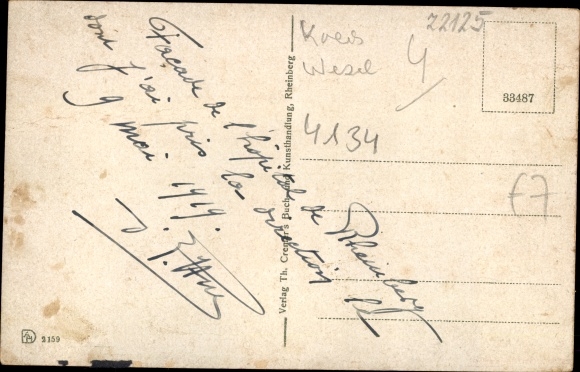 Façade de l'hôpital de Rheinberg
dont j'ai pris la direction le
9 mai 1919.
Kreis
Wesel
4
22125
33487
4134
£7
Verlag Th. Cremer's Buch- und Kunsthandlung, Rheinberg
2159